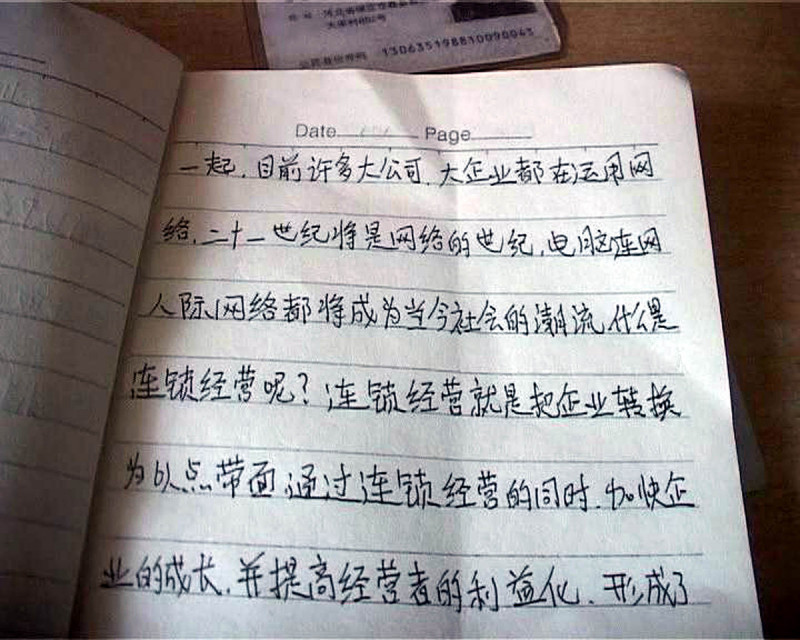 公民身份号码 130635198810090043
Date Page
一起，目前许多大公司，大企业都在运用网
络，二十一世纪将是网络的世纪，电脑连网
人际网络都将成为当今社会的潮流，什么是
连锁经营呢？连锁经营就是把企业转换
为以点带面，通过连锁经营的同时，加快企
业的成长，并提高经营者的利益化，形成了